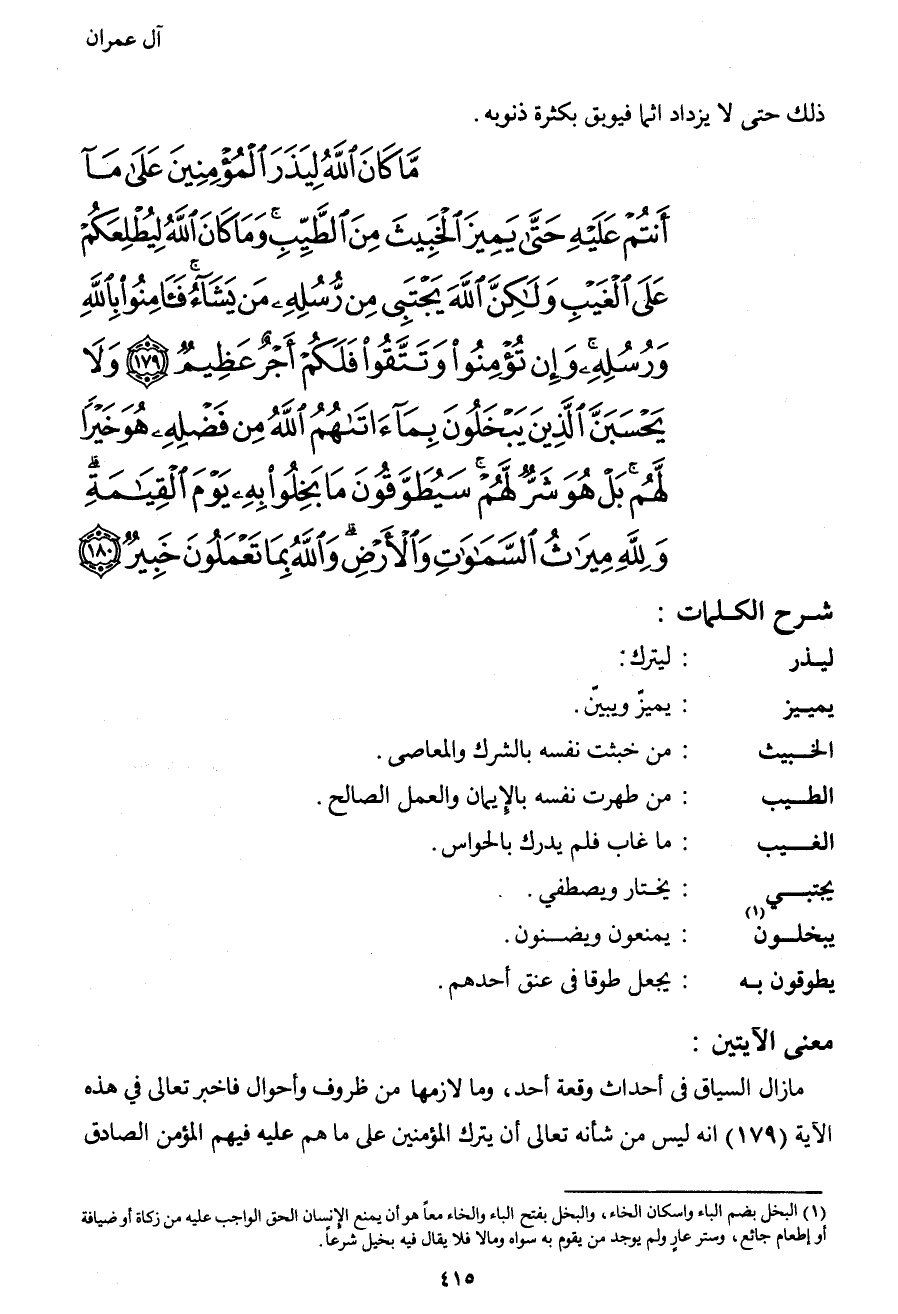 آل عمران
ذلك حتى لا يزداد اثما فيوبق بكثرة ذنوبه .
مَّا كَانَ ٱللَّهُ لِيَذَرَ ٱلْمُؤْمِنِينَ عَلَىٰ مَآ
أَنتُمْ عَلَيْهِ حَتَّىٰ يَمِيزَ ٱلْخَبِيثَ مِنَ ٱلطَّيِّبِ ۗ وَمَا كَانَ ٱللَّهُ لِيُطْلِعَكُمْ
عَلَى ٱلْغَيْبِ وَلَٰكِنَّ ٱللَّهَ يَجْتَبِى مِن رُّسُلِهِۦ مَن يَشَآءُ ۖ فَـَٔامِنُوا۟ بِٱللَّهِ
وَرُسُلِهِۦ ۚ وَإِن تُؤْمِنُوا۟ وَتَتَّقُوا۟ فَلَكُمْ أَجْرٌ عَظِيمٌ ﴿١٧٩﴾ وَلَا
يَحْسَبَنَّ ٱلَّذِينَ يَبْخَلُونَ بِمَآ ءَاتَىٰهُمُ ٱللَّهُ مِن فَضْلِهِۦ هُوَ خَيْرًا
لَّهُم ۖ بَلْ هُوَ شَرٌّ لَّهُمْ ۖ سَيُطَوَّقُونَ مَا بَخِلُوا۟ بِهِۦ يَوْمَ ٱلْقِيَٰمَةِ ۗ
وَلِلَّهِ مِيرَٰثُ ٱلسَّمَٰوَٰتِ وَٱلْأَرْضِ ۗ وَٱللَّهُ بِمَا تَعْمَلُونَ خَبِيرٌ ﴿١٨٠﴾
شرح الكلمات :
ليذر : ليترك :
يميـيز : يميزّ ويبينّ .
الخبيث : من خبثت نفسه بالشرك والمعاصى .
الطيب : من طهرت نفسه بالإيمان والعمل الصالح .
الغيب : ما غاب فلم يدرك بالحواس .
يجتبي : يختار ويصطفي .
يبخلون(١) : يمنعون ويضنون .
يطوقون به : يجعل طوقا فى عنق أحدهم .
معنى الآيتين :
مازال السياق فى أحداث وقعة أحد، وما لازمها من ظروف وأحوال فاخبر تعالى في هذه
الآية (١٧٩) انه ليس من شأنه تعالى أن يترك المؤمنين على ما هم عليه فيهم المؤمن الصادق
(١) البخل بضم الباء واسكان الخاء، والبخل بفتح الباء والخاء معاً هو أن يمنع الإنسان الحق الواجب عليه من زكاة أو ضيافة
أو إطعام جائع، وستر عارٍ ولم يوجد من يقوم به سواه ومالا فلا يقال فيه بخيل شرعاً.
٤١٥